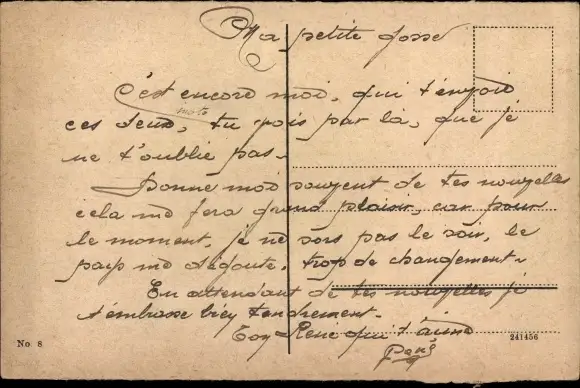 Ma petite gosse
C'est encore moi, qui t'envoie
mots
ces deux, tu vois par là, que je
ne t'oublie pas.
Donne moi souvent de tes nouvelles
cela me fera grand plaisir, car pour
le moment, je ne sors pas le soir, le
pays me dégoute. trop de changement.
En attendant de tes nouvelles je
t'embrasse bien tendrement.
Ton René qui t'aime
René
No. 8
241456